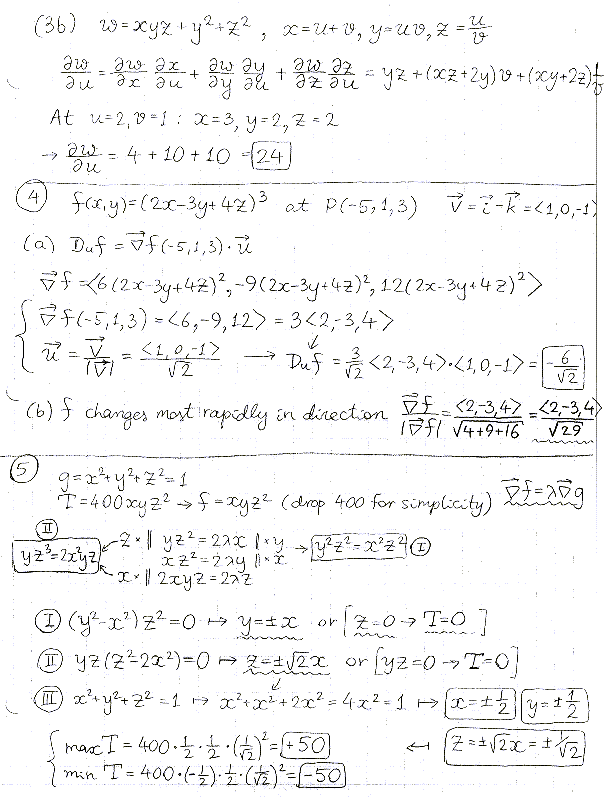 (3b) w=xyz+y²+z², x=u+v, y=uv, z=u/v
∂w/∂u = ∂w/∂x ∂x/∂u + ∂w/∂y ∂y/∂u + ∂w/∂z ∂z/∂u = yz+(xz+2y)v+(xy+2z)1/v
At u=2, v=1: x=3, y=2, z=2
→ ∂w/∂u = 4+10+10 = 24
(4) f(x,y)=(2x-3y+4z)³ at P(-5,1,3) v⃗=i⃗-k⃗=<1,0,-1>
(a) Duf = ∇⃗f(-5,1,3)·u⃗
∇⃗f=<6(2x-3y+4z)²,-9(2x-3y+4z)²,12(2x-3y+4z)²>
∇⃗f(-5,1,3)=<6,-9,12>=3<2,-3,4>
u⃗=v⃗/|v⃗|=<1,0,-1>/√2 → Duf=3/√2<2,-3,4>·<1,0,-1>=-6/√2
(b) f changes most rapidly in direction ∇⃗f/|∇⃗f|=<2,-3,4>/√4+9+16=<2,-3,4>/√29
(5) g=x²+y²+z²=1
T=400xyz² → f=xyz² (drop 400 for simplicity) ∇⃗f=λ∇⃗g
(II) z*‖ yz²=2λx ‖*y → y²z²=x²z² (I)
yz³=2x²yz xz²=2λy ‖*x
x*‖ 2xyz=2λz
(I) (y²-x²)z²=0 ↦ y=±x or [z=0 → T=0]
(II) yz(z²-2x²)=0 ↦ z=±√2x or [yz=0 → T=0]
(III) x²+y²+z²=1 ↦ x²+x²+2x²=4x²=1 ↦ x=±1/2 y=±1/2
max T = 400·1/2·1/2·(1/√2)²=+50 ↤ z=±√2x=±1/√2
min T = 400·(-1/2)·1/2·(1/√2)²=-50